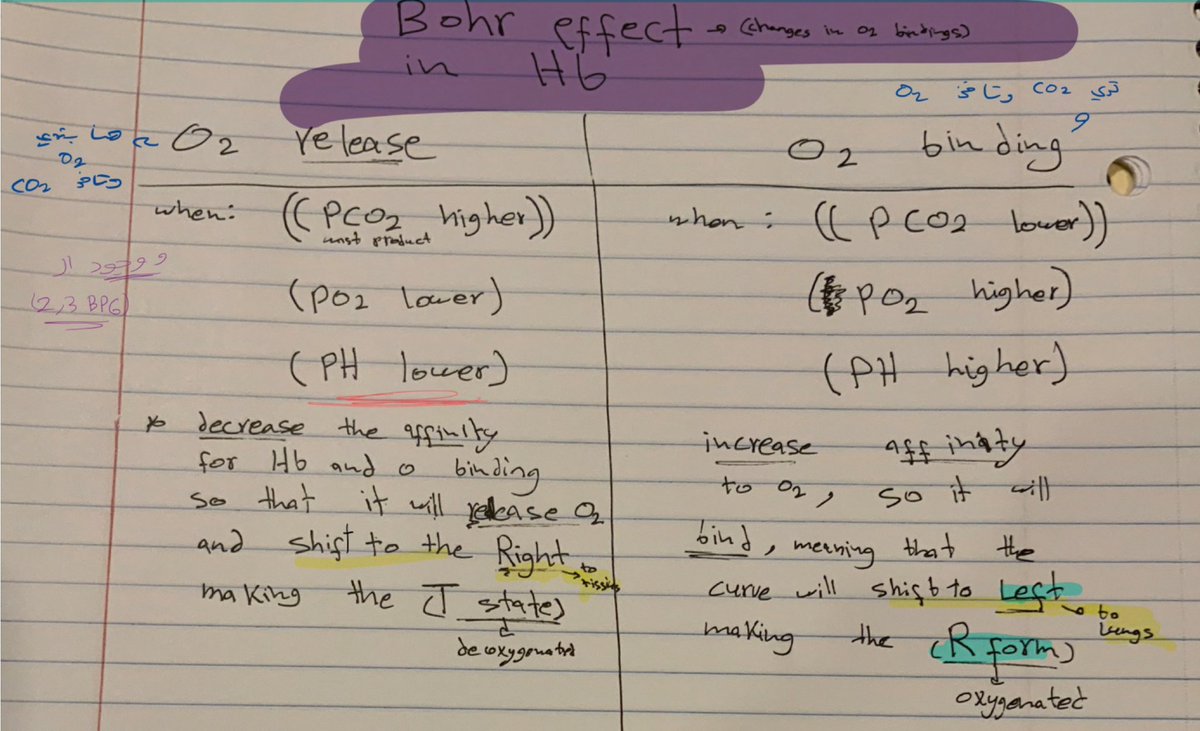 Bohr effect → (changes in O2 bindings)
in Hb
تدي CO2 وتاخذ O2
هنا بتدي
O2
وتاخذ CO2
O2 release
when: ((PCO2 higher))
(PO2 lower)
(PH lower)
(2,3 BPG)
* decrease the affinity
for Hb and O binding
so that it will release O2
and shift to the Right → to
making the (T state)
deoxygenated
O2 binding
when: ((PCO2 lower))
(PO2 higher)
(PH higher)
increase affinity
to O2, so it will
bind, meaning that the
curve will shift to Left → to
lungs
making the (R form)
oxygenated